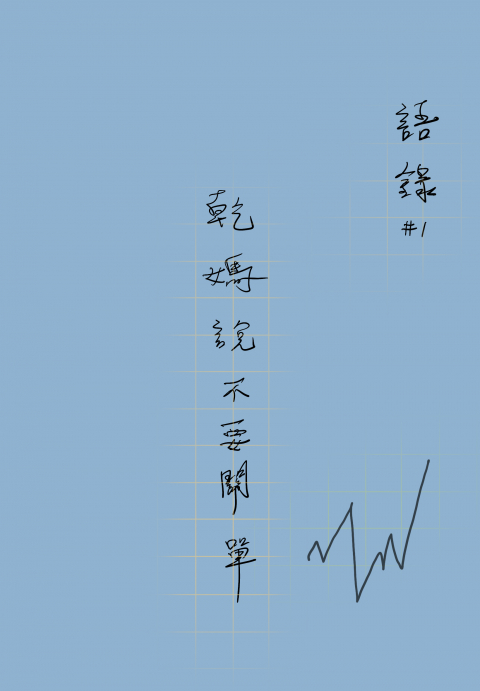 語錄
#1
乾媽說不要開單